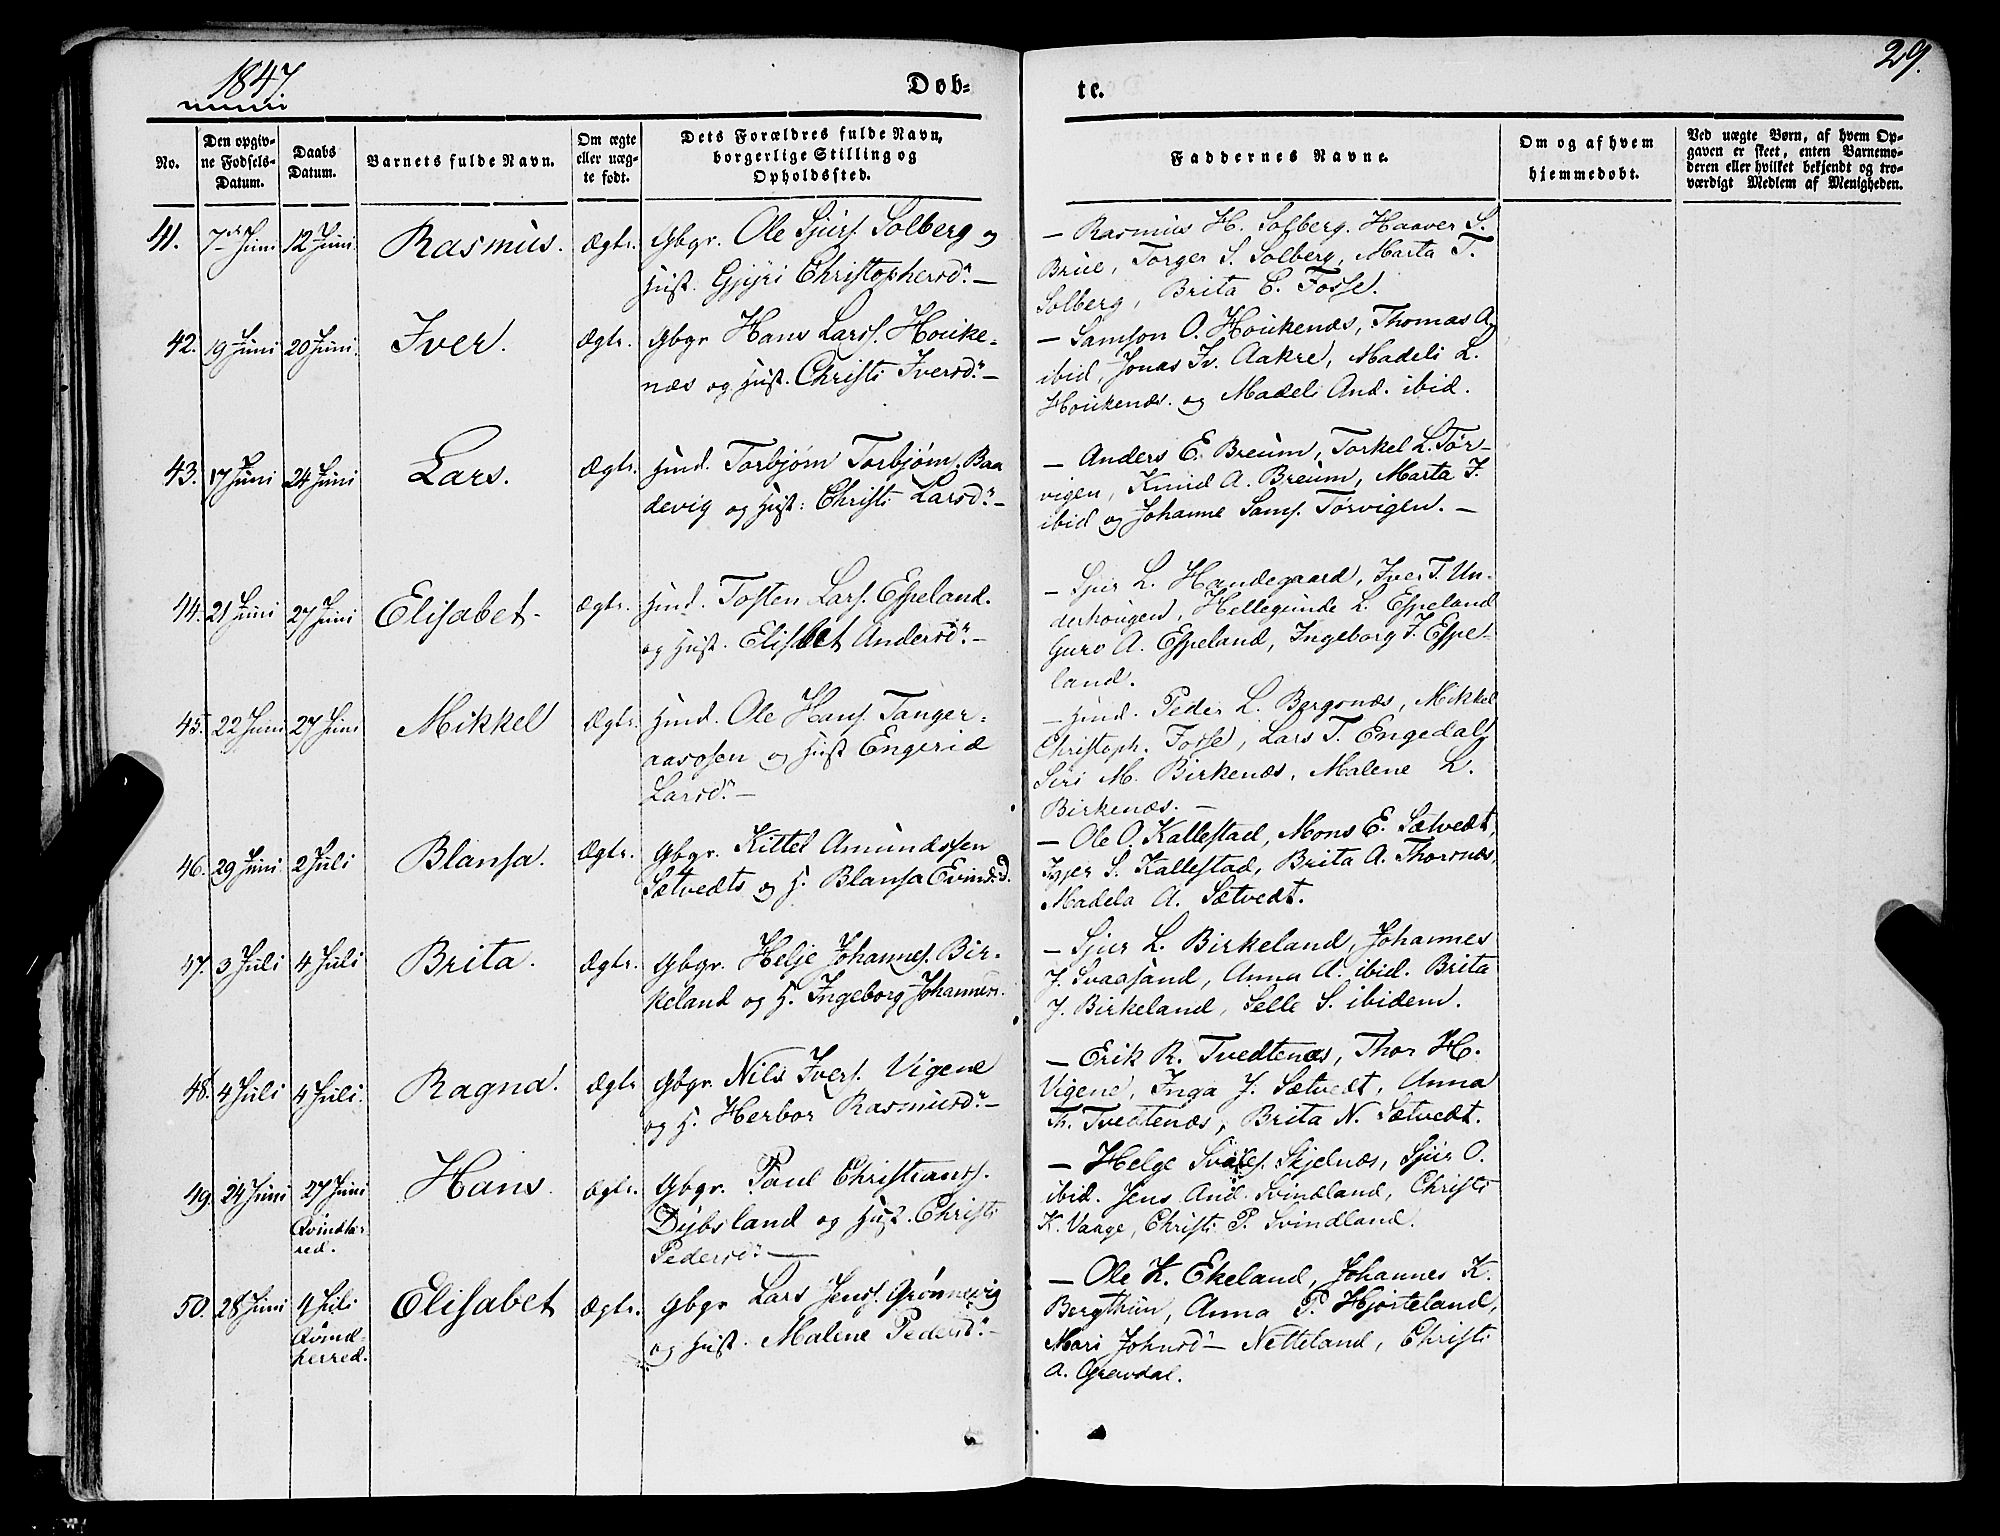 1847.
Døb=
te.
29.
No.
Den opgiv-
ne Fødsels-
Datum.
Daabs
Datum.
Barnets fulde Navn.
Om ægte
eller uæg-
te født.
Dets Forældres fulde Navn,
borgerlige Stilling og
Opholdssted.
Faddernes Navne.
Om og af hvem
hjemmedøbt.
Ved uægte Børn, af hvem Op-
gaven er skeet, enten Barnemo-
deren eller hvilket bekjendt og tro-
værdigt Medlem af Menigheden.
41. 7de Juni 12 Juni Rasmus. Ægte. Gbgr. Ole Sjurs. Solberg og
Hust. Gjyri Christophersd. —
— Rasmus H. Solberg. Haaver S.
Brue, Torger S. Solberg, Marta T.
Solberg, Brita C. Fosse.
42. 19 Juni 20 Juni. Iver. Ægte. Gbgr Hans Larss. Houke=
næs og Hust. Christi Iversd. —
— Samson O. Houkenæs, Thomas A.
ibid, Jonas Iv. Aakre, Madeli L.
Houkenæs. og Madeli And. ibid.
43. 17 Juni 24 Juni Lars. Ægte. Hmd. Torbjørn Torbjørn. Baa
devig og Hust: Christi Larsd. —
— Anders E. Breum, Torkel L. Tør-
vigen, Knud A. Breum, Marta J.
ibid og Johanne Sams. Tørvigen. —
44. 21 Juni 27 Juni Elisabet - Ægte. Hmd. Tosten Lars. Espeland.
og Hust. Elisbet Andersd. —
— Sjur L. Handegaard, Iver T. Un-
derhougen, Hellegunde L. Espeland
Guro A. Espeland, Ingeborg J. Espe-
land.
45. 22 Juni 27 Juni Mikkel Ægte. Hmd. Ole Hans. Tanger=
aasosen og Hust Engerid
Larsd. —
— Hmd. Peder L. Bergsnæs, Mikkel
Christoph. Fosse, Lars T. Engedal,
Siri M. Birkenæs, Malene L.
Birkenæs. —
46. 29 Juni. 2 Juli Blansa. Ægte. Gbgr. Kittel Amundssen
Sætvedts og H. Blansa Evind.d.
— Ole O. Kallestad, Mons E. Sætvedt,
S. Kallestad, Brita A. Thorsnæs,
Madela A. Sætvedt.
47. 3 Juli 4 Juli Brita. Ægte. Gbgr. Helje Johannes. Bir-
keland og H. Ingeborg Johannesd.
— Sjur L. Birkeland, Johannes
J. Svaasand, Anna A. ibid. Brita
J. Birkeland, Selle S. ibidem.
48. 4 Juli 4 Juli. Ragna. Ægte Gbgr. Nils Ivers. Vigene
og H. Herbor Rasmusd. —
— Erik R. Tvedtenæs, Thor H.
Vigene, Inga J. Sætvedt, Anna
Th. Tvedtenæs, Brita N. Sætvedt.
49. 24 Juni 27 Juni Hans Ægte. Gbgr. Paul Christians.
Qvindhe-
red.
Dybsland og Hust. Christi
Pedersd. —
— Helge Skjelnæs, Sjur O.
ibid. Jens And. Svindland, Christi
K. Vaage, Christi P. Svindland.
50. 28 Juni 4 Juli Elisabet Ægte. Gbgr Lars Jenss. Grønnevig
Qvind-
herred.
og Hust. Malene Pedersd. —
— Ole K. Ekeland, Johannes K.
Bergthun, Anna P. Hjorteland,
Mari Johnsd — Netteland, Christi
A. Gravdal.